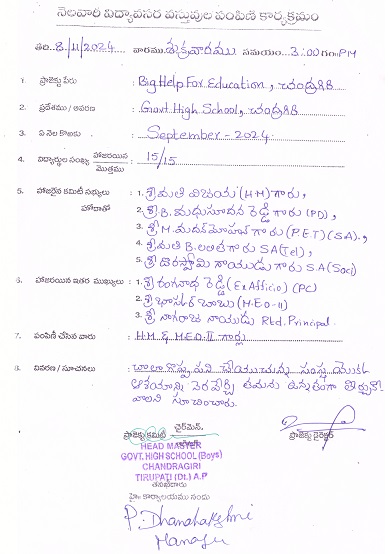 నెలవారీ విద్యావసర వస్తువుల పంపిణీ కార్యక్రమం
తేది..8/11/2024 వారము శుక్రవారము సమయం...3:00గంPM
1. ప్రాజెక్టు పేరు : Big Help For Education, చంద్రగిరి
2. ప్రదేశము / ఆవరణ : Govt High School, చంద్రగిరి
3. ఏ నెల కొఱకు : September - 2024
4. విద్యార్థుల సంఖ్య హాజరయిన / మొత్తము : 15/15
5. హాజరైన కమిటీ సభ్యులు : 1. శ్రీమతి విజయ (HM) గారు,
హోదాతో 2. శ్రీ B. మధుసూదన రెడ్డి గారు (PD),
3. శ్రీ M. మదన్ మోహన్ గారు (P.E.T) (SA).,
4. శ్రీమతి B. లలిత గారు SA(Tel),
5. శ్రీ దొరస్వామి నాయుడు గారు S.A(Soc)
6. హాజరయిన ఇతర ముఖ్యులు : 1. శ్రీ రంగనాథ రెడ్డి (Ex Afficio) (PC)
2. శ్రీ భాస్కర్ బాబు (M.E.O-II)
3. శ్రీ నాగరాజ నాయుడు Rtd. Principal
7. పంపిణీ చేసిన వారు : H.M & M.E.O-II గార్లు
8. వివరణ / సూచనలు : చాలా గొప్ప పని చేయుచున్న సంస్థ యొక్క
ఆశయాన్ని నెరవేర్చి తమను ఉన్నతంగా తీర్చుకో
వాలని సూచించారు.
ప్రాజెక్టు కమిటీ చైర్‌మెన్. ప్రాజెక్టు డైరెక్టర్
HEAD MASTER
GOVT. HIGH SCHOOL (Boys)
CHANDRAGIRI
TIRUPATI (Dt.) A.P
హై|| కార్యాలయము నందు
P. Dhanalakshmi
Manager